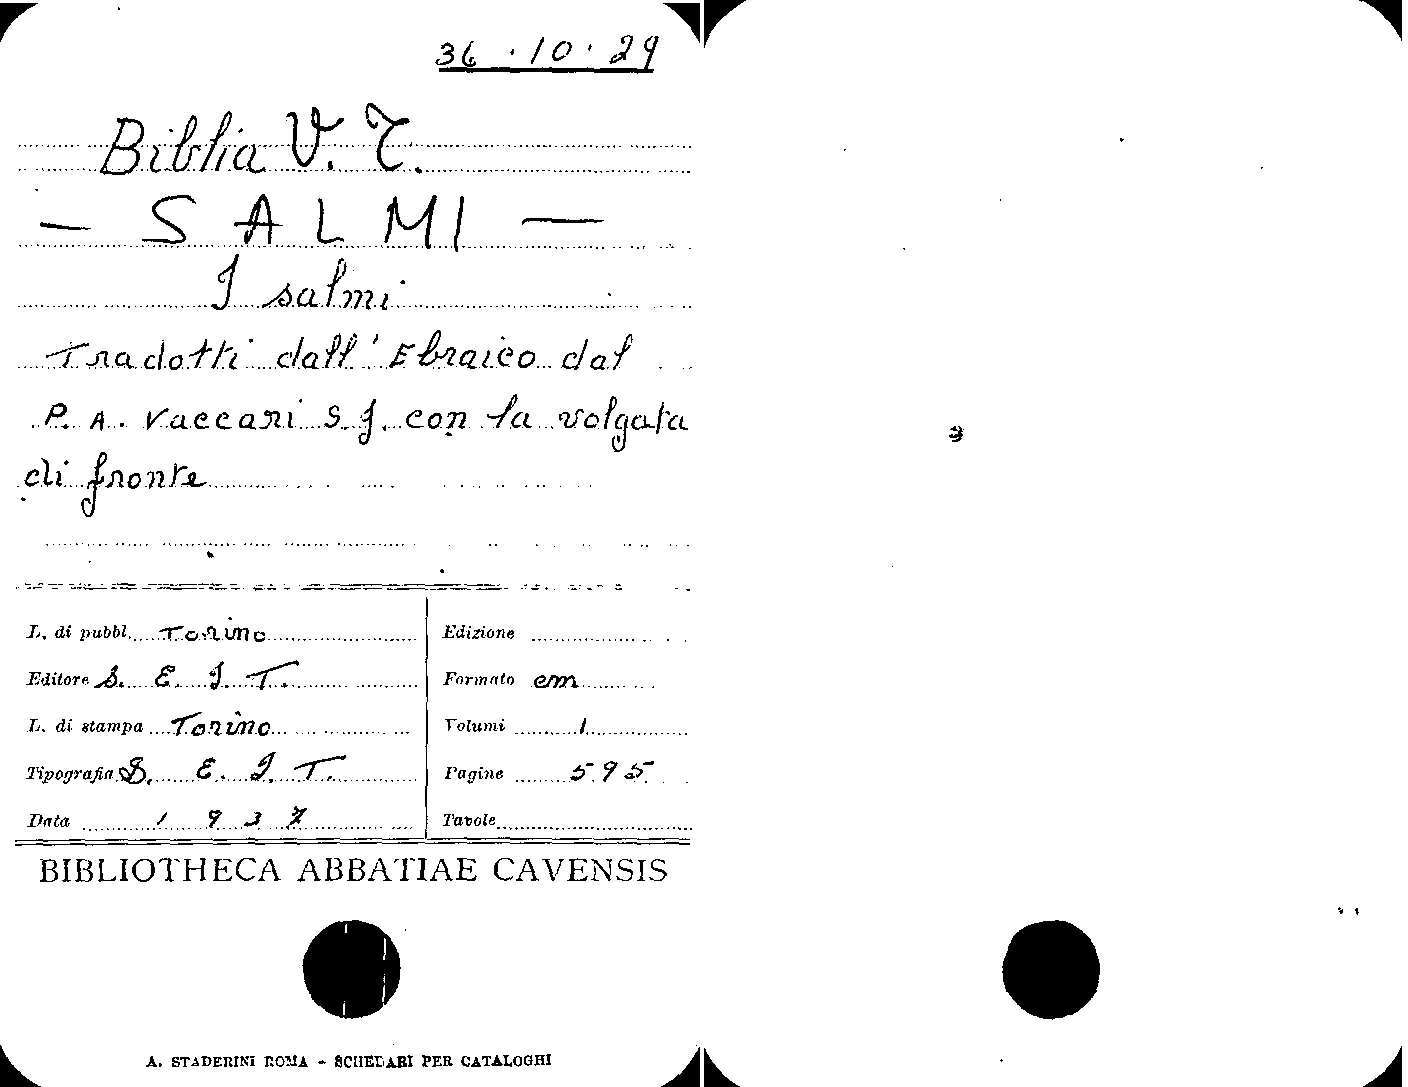 36 · 10 · 29
Biblia V. T.
— SALMI —
I salmi
Tradotti dall' Ebraico dal
P. A. Vaccari S. J. con la volgata
di fronte
L. di pubbl. Torino
Edizione
Editore S. E. I. T.
Formato em
L. di stampa Torino
Volumi 1
Tipografia S. E. I. T.
Pagine 595
Data 1937
Tavole
BIBLIOTHECA ABBATIAE CAVENSIS
A. STADERINI ROMA - SCHEDARI PER CATALOGHI